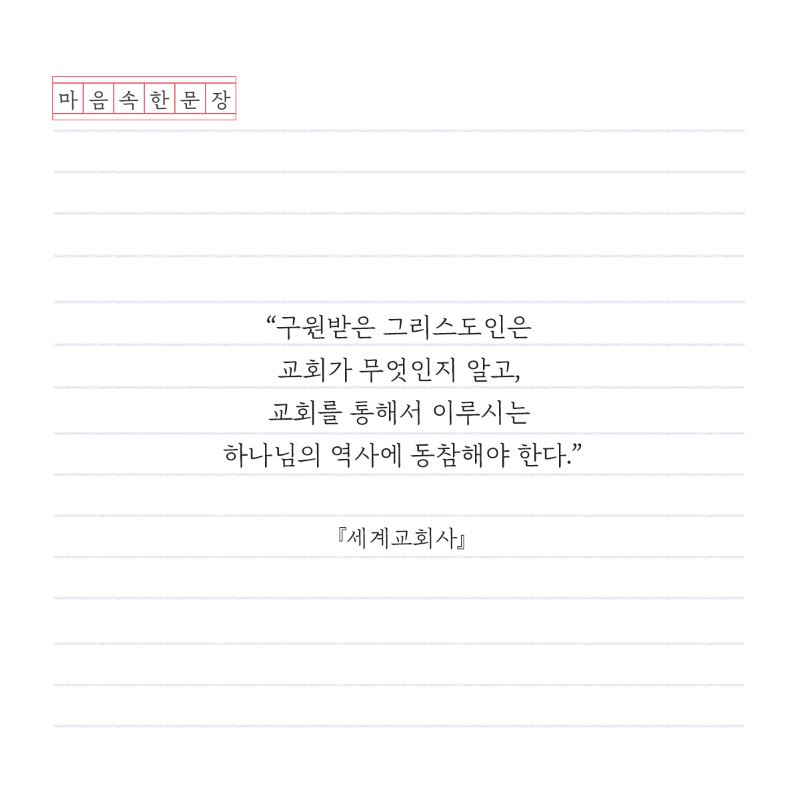 마음속한문장
“구원받은 그리스도인은
교회가 무엇인지 알고,
교회를 통해서 이루시는
하나님의 역사에 동참해야 한다.”
『세계교회사』